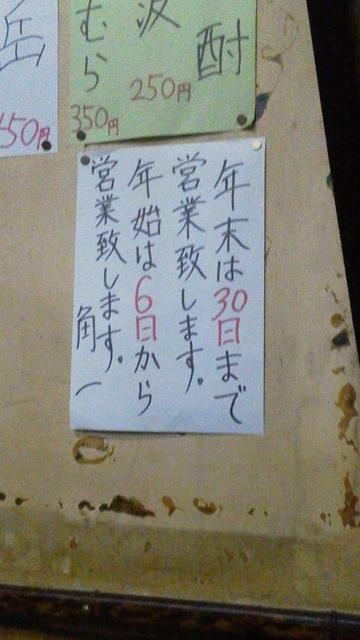 酎
250円
むら
350円
岳
450円
年末は30日まで
営業致します。
年始は6日から
営業致します。
角一